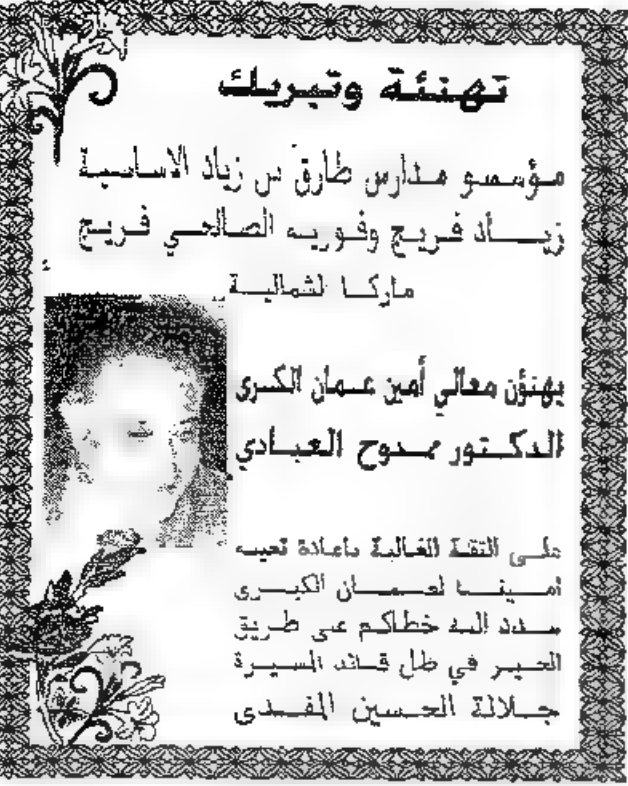 تهنئة وتبريك
مؤسسو مدارس طارق بن زياد الاساسية
زياد فريج وفوزيه الصالحي فريج
ماركا الشمالية
يهنؤن معالي أمين عمان الكبرى
الدكتور ممدوح العبادي
على الثقة الغالية باعادة تعيينه
أمينا لعمان الكبرى
سدد الله خطاكم على طريق
الخير في ظل قائد المسيرة
جلالة الحسين المفدى